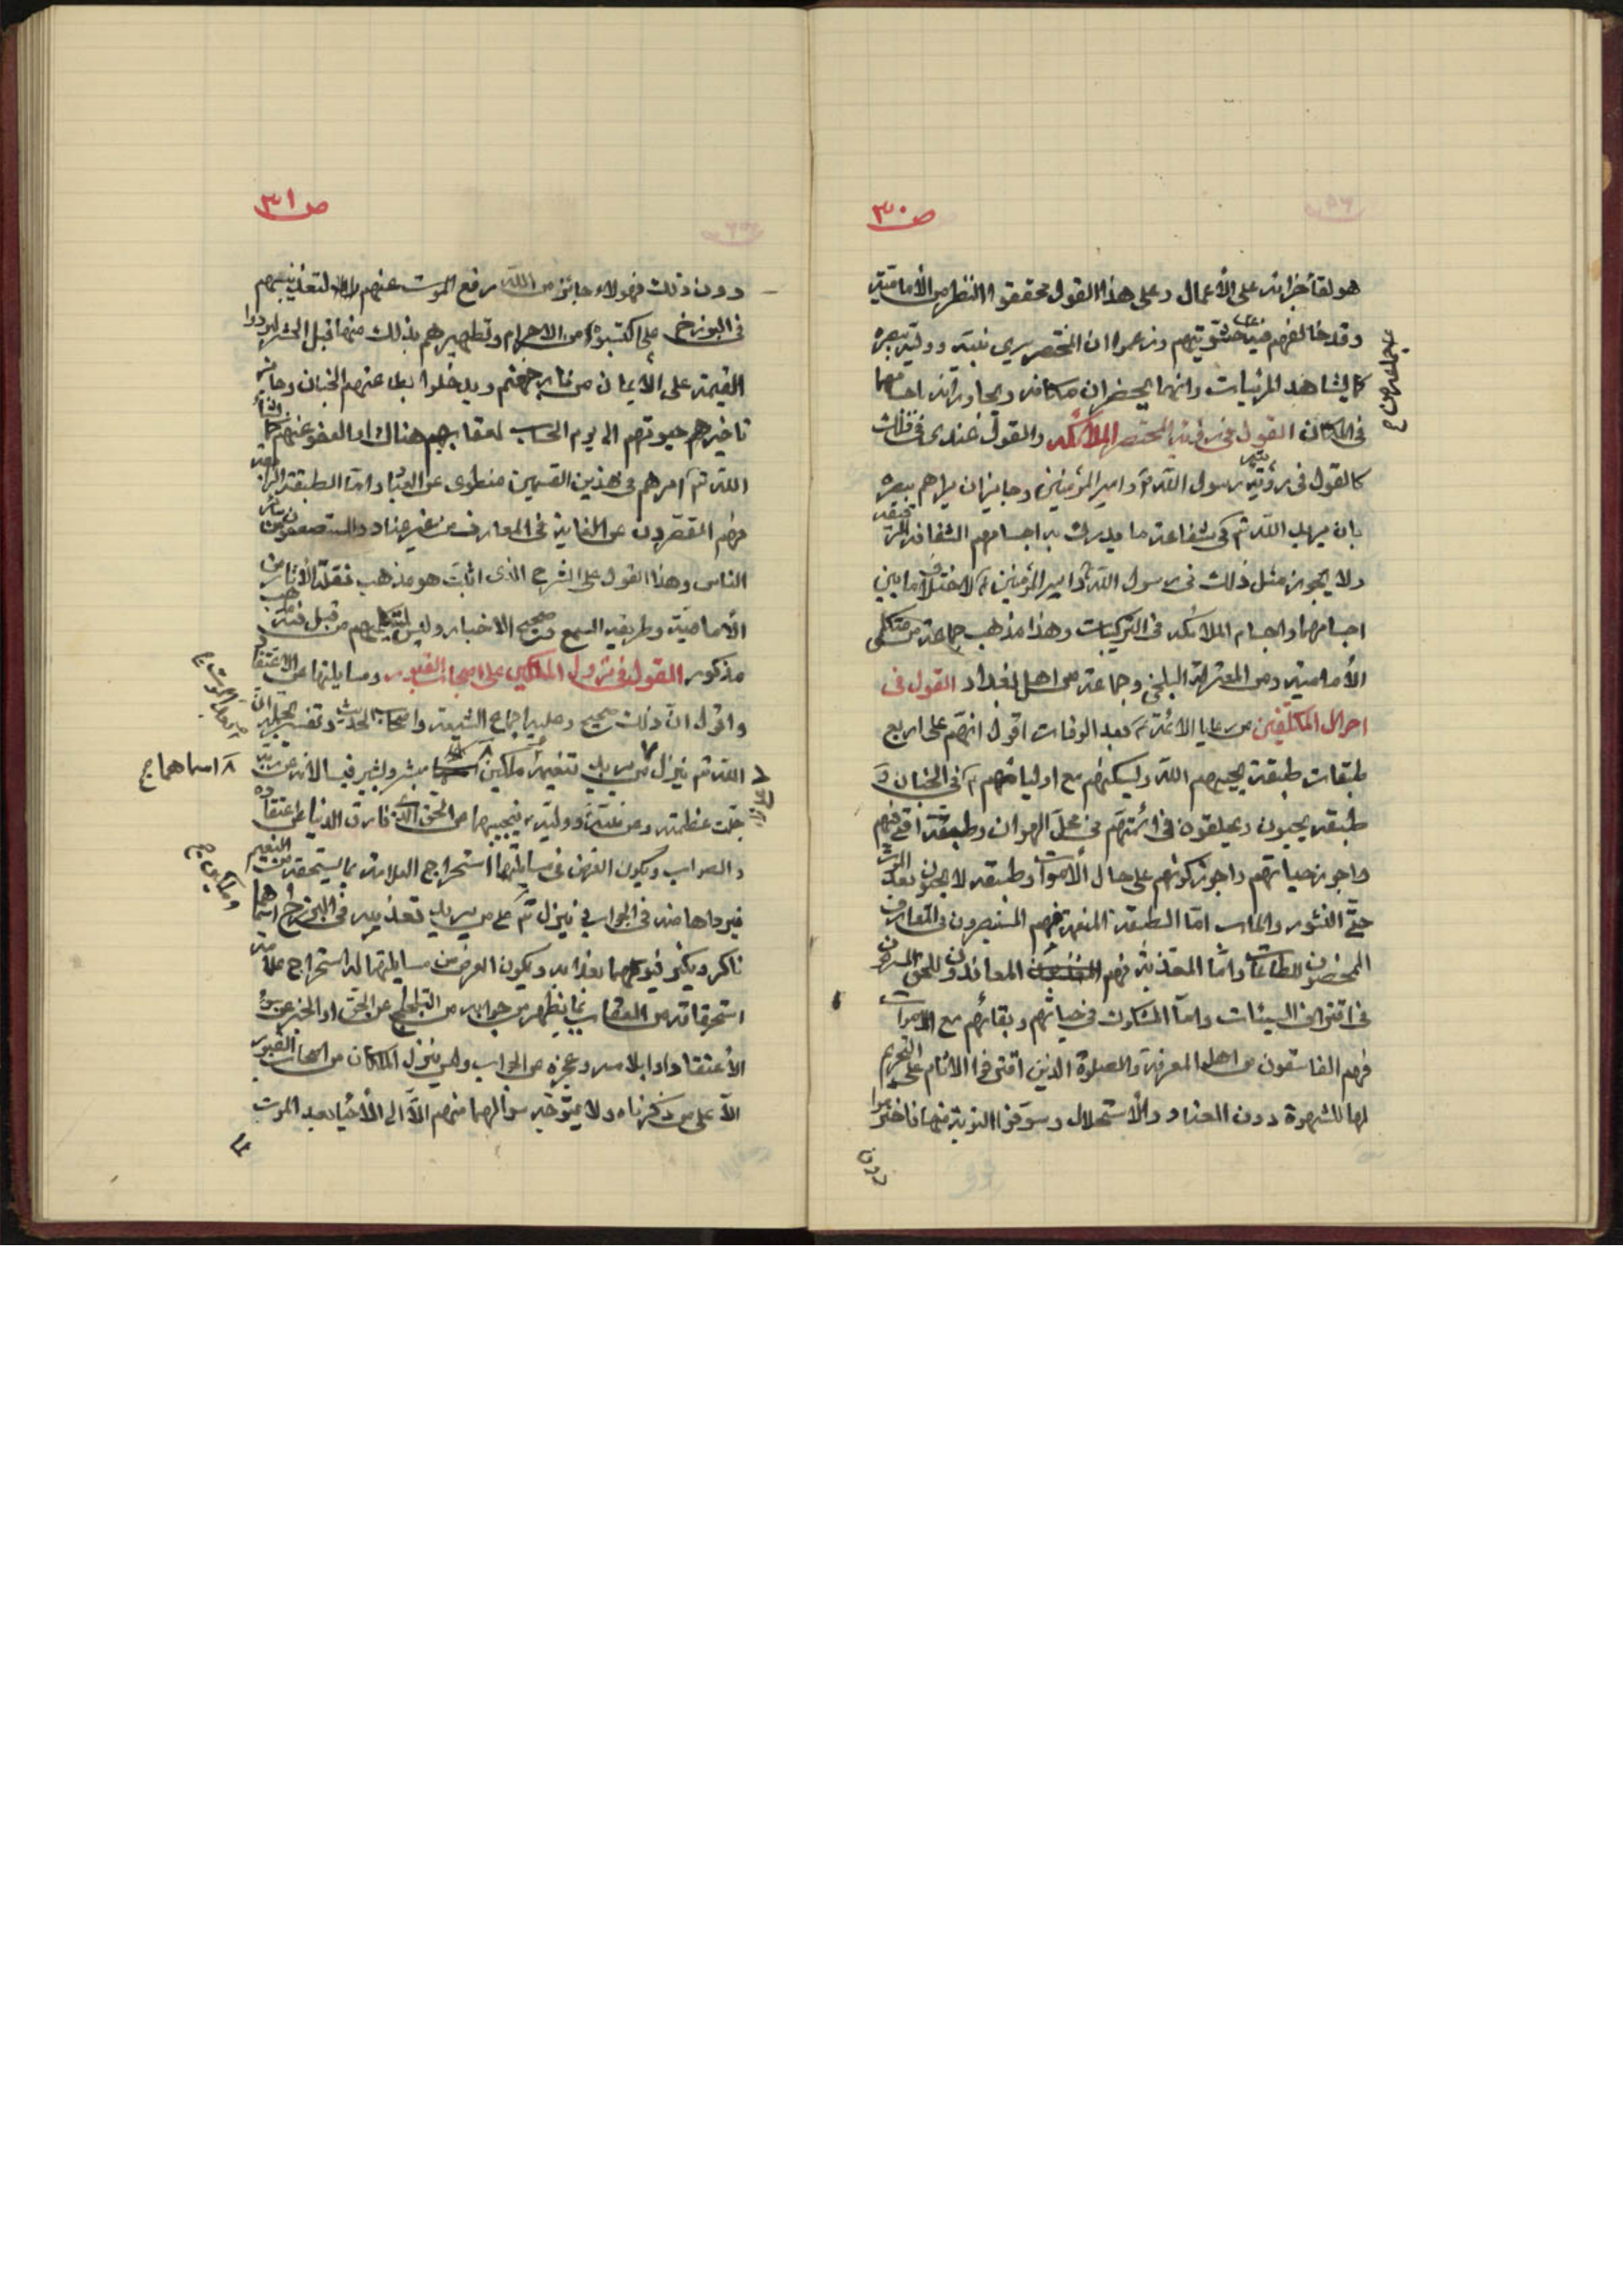 ص ٣٠
هو لقأ جزائه على الأعمال وعلى هذا القول محققوا النظر من الأمامية
وقد خالفهم فيه حشويتهم وزعموا ان المحتضر يري نبيه ووليه ببصره
كما يشاهد المرئيات وانهما يحضران مكانه ويجاورانه باجسامهما
فى المكان القول فى رؤية المحتضر الملائكه والقول عندى فى ذلك
كالقول فى رؤيته رسول الله وامير المؤمنين وجايز ان يراهم ببصره
بان يزيد الله تم فى شعاعه ما يدرك به اجسامهم الشفافه الرقيقه
ولا يجوز مثل ذلك فى رسول الله وامير المؤمنين لاختلاف ما بين
اجسامهما واجسام الملائكه فى التركيبات وهذا مذهب جماعة من متكلمى
الأمامية ومن المعتزلة البلخي وجماعة من اهل بغداد القول فى
احوال المكلفين من رعايا الائمة بعد الوفات اقول انهم على اربع
طبقات طبقة يحييهم الله ويسكنهم مع اوليائهم فى الجنان و
طبقة يحيون ويلحقون فى ائمتهم فى محل الهوان وطبقة اقف فيهم
واجوز حياتهم واجوز كونهم على حال الأموات وطبقه لا يحيون بعد الموت
حتّى النشور والمآب امّا الطبقة المنعمة فهم المستبصرون فى المعارف
الممحضون للطاعات وامّا المعذبة فهم المعاندون للحق المسرفون
فى اقتراف السيئات وامّا المشكوك فى حياتهم وبقائهم مع الاموات
فهم الفاسقون من اهل المعرفة والصلوة الذين اقترفوا الآثام على التحريم
لها للشهوة دون العناد والأستحلال وسوّفوا التوبة منها فاخترموا
دون
ص ٣١
دون ذلك فهولاء جائز من الله رفع الموت عنهم لتعذيبهم
فى البرزخ على ما اكتسبوه من الاجرام وتطهيرهم بذلك منها قبل الحشر ليردوا
القيمة على الأيمان من نار جهنم ويدخلوا بطاعتهم الجنان وجايز
تاخيرهم حيوتهم الى يوم الحساب لعقابهم هناك او العفو عنهم كما يشاء
الله تم امرهم فى هذين القسمين منطوى عن العباد وامّا الطبقة الرابعة
فهم المقصّرون عن الغاية فى المعارف من غير عناد والمستضعفون من سائر
الناس وهذا القول على الشرح الذى اثبت هو مذهب نقلة الأثار من
الأمامية وطريقه السمع وصحيح الاخبار وليس لمتكلميهم من قبل فيه مذهب
مذكور القول فى نزول الملكين على اصحاب القبور ومسايلتهما عن الاعتقاد
واقول انّ ذلك صحيح وعليه اجماع الشيعة واصحاب الحديث وتفسير مجمله انّ
الله تم ينزل على من يريد تنعيمه ملكين مبشر وبشير فيسالانه عن ربّه
جلت عظمته وعن نبيّه ووليّه فيجيبهما عن الحق الذى فارق الدنيا على اعتقاده
والصواب ويكون الغرض فى مسايلتهما استخراج العلامة بما يستحقه من النعيم
فيجداها منه فى الجواب وينزل تم على من يريد تعذيبه فى البرزخ اسماهما
ناكر ونكير فيوكلهما بعذابه ويكون الغرض من مسايلتهما له استخراج علامة
استحقاقه من العقاب بما يظهر من جوابه من التلجلج عن الحق او الخبر عن سوء
الأعتقاد او ابلاسه وعجزه عن الجواب وليس ينزل الملكان من اصحاب القبور
الّا على من ذكرناه ولا يتوجّه سوالهما منهم الّا الى الأحياء بعد الموت
٨ اسماهما ج
وملكين ج